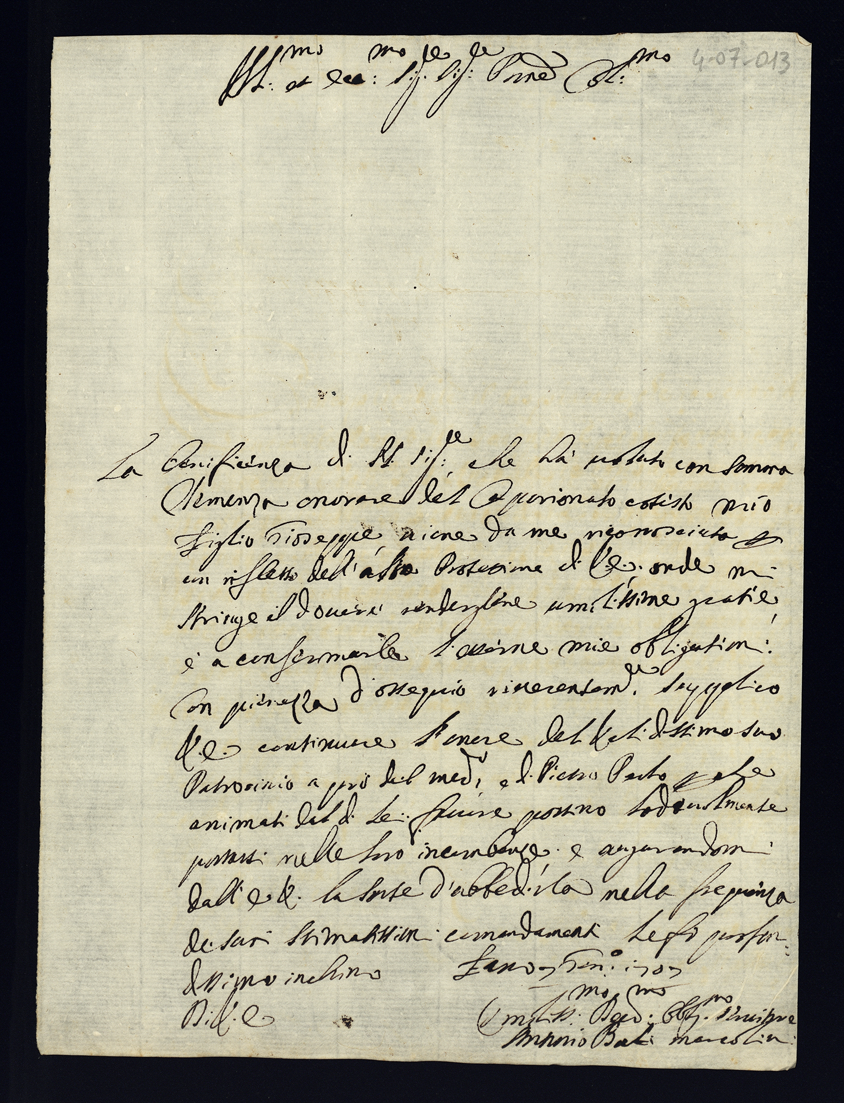 4-07-013
Ill:mo et ecc:mo Sig:re Sig:re Prne Col:mo
La Beneficienza di V.S. Ill: che hà voluto con somma
Clemenza onorare del mio
Figlio Gioseppe viene da me riconosciuta p
un riflesso dell'alta Protezione di V.E. onde mi
stringe il dovere renderglene umilissime gratie
e a confirmarle l'eterne mie obligationi:
Con pienezza d'ossequio riverentem:te supplico
V.E. continuare l'onore del Validissimo suo
Patrocinio a prò del med:o e di Pietro Paolo p che
animati dal di Lei favore possino lodevolmente
portarsi nelle loro incumbenze. e augurandomi
dall'E.V. la sorte d'obbedirla nella frequenza
de suoi stimatissimi comandamenti le fò profon:
dissimo inchino Fano 7 Gen:o 1707
Di V.E.
Umiliss:mo Dev:mo Obl:mo Servitore
Antonio Marcolini